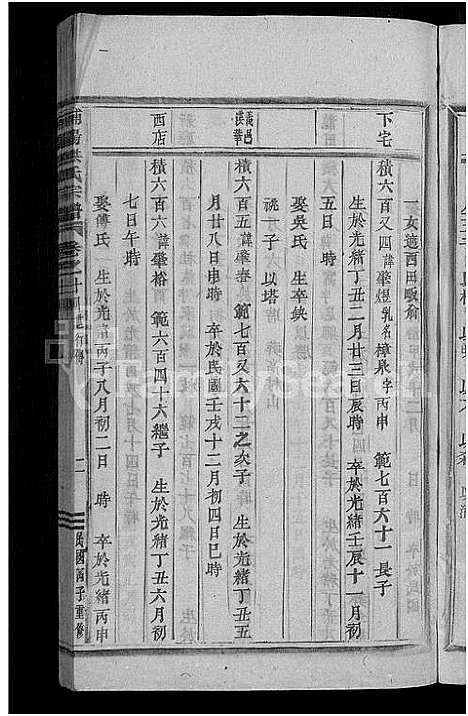 下宅
積六百又四諱肇煜乳名樟泉字丙申 範七百六十一長子
生於光緒丁丑二月廿三日辰時 卒於光緒壬辰十一月初
五日時
娶吳氏 生卒缺
祧一子 以塔
積六百五諱肇春 範七百又六十二之次子 生於光緒丁丑五
月廿八日申時 卒於民國壬戌十二月初四日巳時
西店
積六百六諱肇裕 範六百四十六繼子 生於光緒丁丑六月初
七日午時
娶傅氏 生於光緒丙子八月初二日 時 卒於光緒丙申
浦陽洪氏宗譜 卷之十 行傳
民國丙子重修